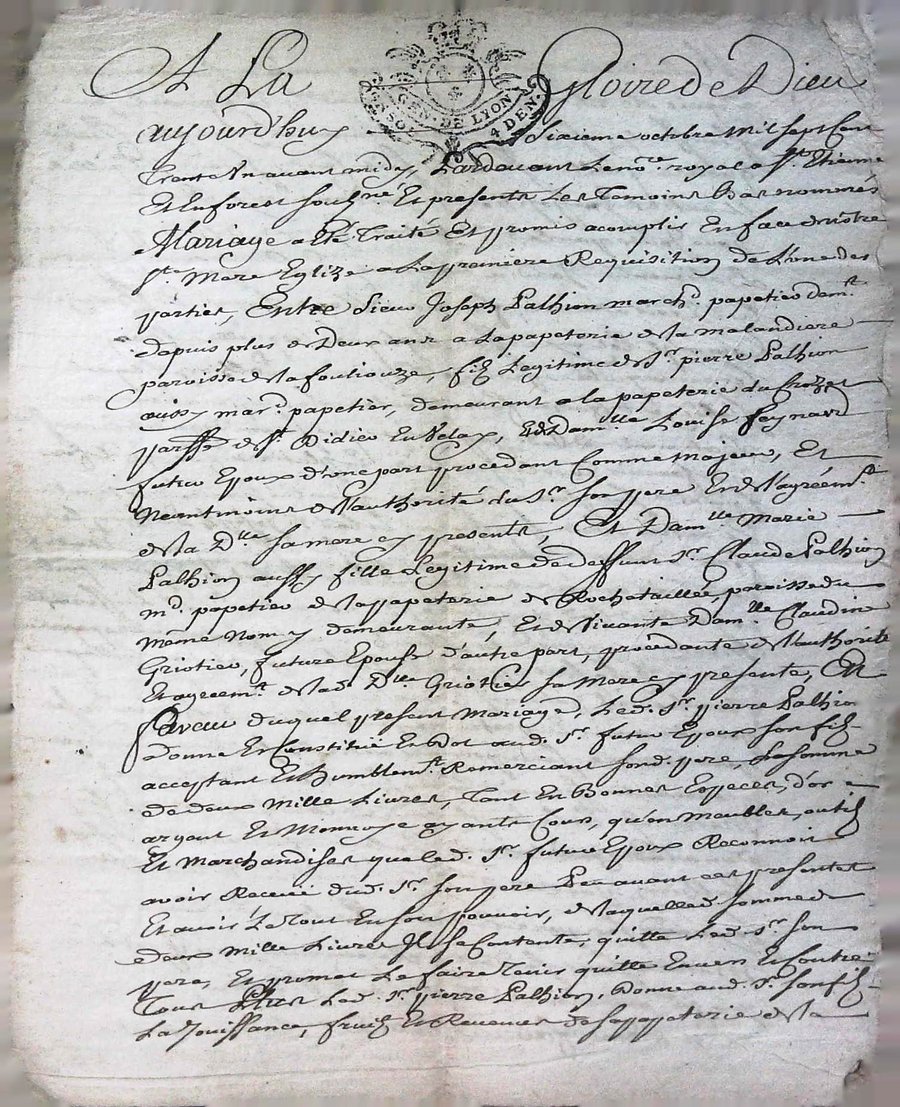 A La Gloire de Dieu
GEN. DE LYON
4 DEN.
aujourd'huy sixieme octobre Mil sept Cen
Trente Un avant midy, Pardevant Le no.re royal a St. Etienne
Et En forest sousg.né Et presents Les Temoins Bas nommés
Mariage a Eté Traité Et promis acomplir En face de nostre
Ste. Mere Eglize a La premiere Requisition de L'une des
parties, Entre Sieur Joseph Palhion march.d papetier dem.t
depuis plus de Deux ans a La papeterie de la malandiere
paroisse de la fouliouze, fils Legitime de Sr. pierre Palhion
aussy marc.d papetier, demeurant a la papeterie du Crozet
parsse de St. Didier En Velay, Et de Dam.lle Louise feynard
futur Epoux d'une part procedant Comme Majeur, Et
Neantmoins de l'authorité du Sr. son pere Et de l'agréem.t
de la D.lle sa mere cy presents, Et Dam.lle Marie
Palhion aussy fille Legitime de deffunt Sr. Claude Palhion
m.d papetier de la papeterie de Rochetaillée, paroisse du
même Nom y demeurante, Et de Vivante Dam.lle Claudine
Griotier, future Epouse d'autre part, procedante de l'authorité
Et agreem.t de lad. D.lle Griotier sa Mere cy presente, En
faveur duquel present Mariage, Led. Sr. pierre Palhion
a donné Et Constitué En dot aud. Sr. futur Epoux son fils
acceptant Et humblem.t Remerciant sond. pere, La somme
de deux Mille Livres, Tant En Bonnes Especes, d'or
argent Et Monnoye ayants Cours, qu'en meubles, outils
Et Marchandises que led. Sr. futur Epoux Reconnoit
avoir Receüe dud. Sr. son pere avant ces presentes
Et avoir Le Tout En son pouvoir, de laquelle somme de
deux Mille Livres Il se Contente, quitte Led. Sr. son
pere, Et promet Le faire Tenir quitte Envers Et Contre
Tous Led. Sr. pierre Palhion, Donne aud. Sr. son fils
La Jouissance, fruits Et Revenus de sa papeterie de la